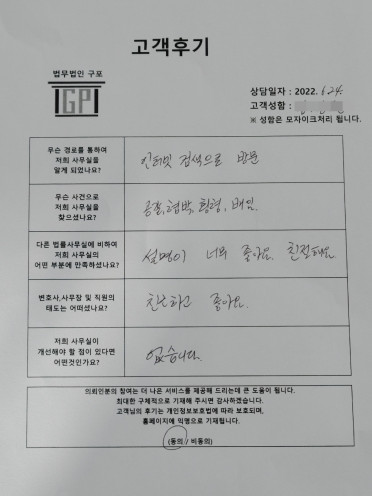 고객후기
법무법인 구포
GP
상담일자 : 2022. 6.24.
고객성함 :
※ 성함은 모자이크처리 됩니다.
무슨 경로를 통하여
저희 사무실을
알게 되었나요?
인터넷 검색으로 방문
무슨 사건으로
저희 사무실을
찾으셨나요?
공갈, 협박, 횡령, 배임.
다른 법률사무실에 비하여
저희 사무실의
어떤 부분에 만족하셨나요?
설명이 너무 좋아요. 친절해요.
변호사,사무장 및 직원의
태도는 어떠셨나요?
친근하고 좋아요.
저희 사무실이
개선해야 할 점이 있다면
어떤것인가요?
없습니다.
의뢰인분의 참여는 더 나은 서비스를 제공해 드리는데 큰 도움이 됩니다.
최대한 구체적으로 기재해 주시면 감사하겠습니다.
고객님의 후기는 개인정보보호법에 따라 보호되며,
홈페이지에 익명으로 기재됩니다.
(동의 / 비동의)